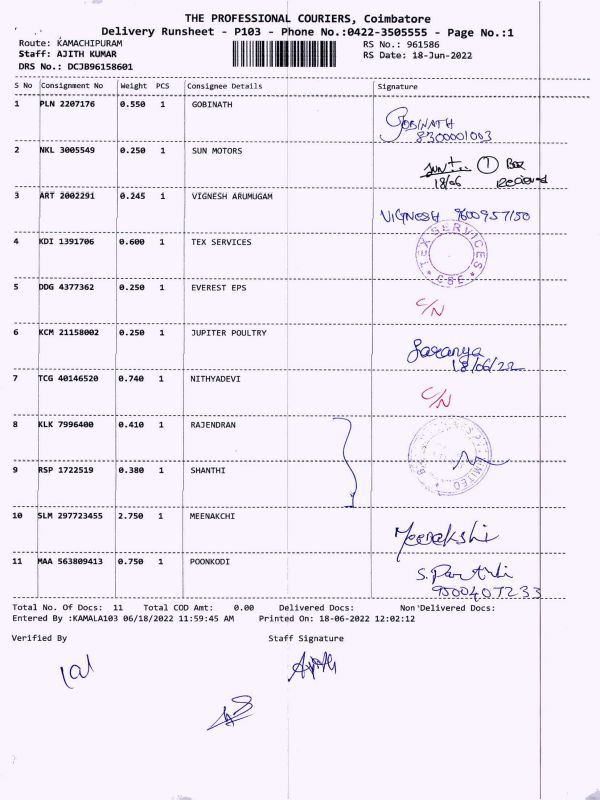 THE PROFESSIONAL COURIERS, Coimbatore
Delivery Runsheet - P103 - Phone No.:0422-3505555 - Page No.:1
Route: KAMACHIPURAM RS No.: 961586
Staff: AJITH KUMAR RS Date: 18-Jun-2022
DRS No.: DCJB96158601
S No Consignment No Weight PCS Consignee Details Signature
1 PLN 2207176 0.550 1 GOBINATH
GOBINATH
8300001003
2 NKL 3005549 0.250 1 SUN MOTORS
1 Box
18/06 Recieved
3 ART 2002291 0.245 1 VIGNESH ARUMUGAM
VIGNESH 9600957150
4 KDI 1391706 0.600 1 TEX SERVICES
TEX SERVICES
CBE
5 DDG 4377362 0.250 1 EVEREST EPS
C/N
6 KCM 21158002 0.250 1 JUPITER POULTRY
Saranya
18/06/22
7 TCG 40146520 0.740 1 NITHYADEVI
C/N
8 KLK 7996400 0.410 1 RAJENDRAN
LIMITED
9 RSP 1722519 0.380 1 SHANTHI
10 SLM 297723455 2.750 1 MEENAKCHI
Meenakshi
11 MAA 563809413 0.750 1 POONKODI
9500407233
Total No. Of Docs: 11 Total COD Amt: 0.00 Delivered Docs: Non Delivered Docs:
Entered By :KAMALA103 06/18/2022 11:59:45 AM Printed On: 18-06-2022 12:02:12
Verified By Staff Signature
Ajith